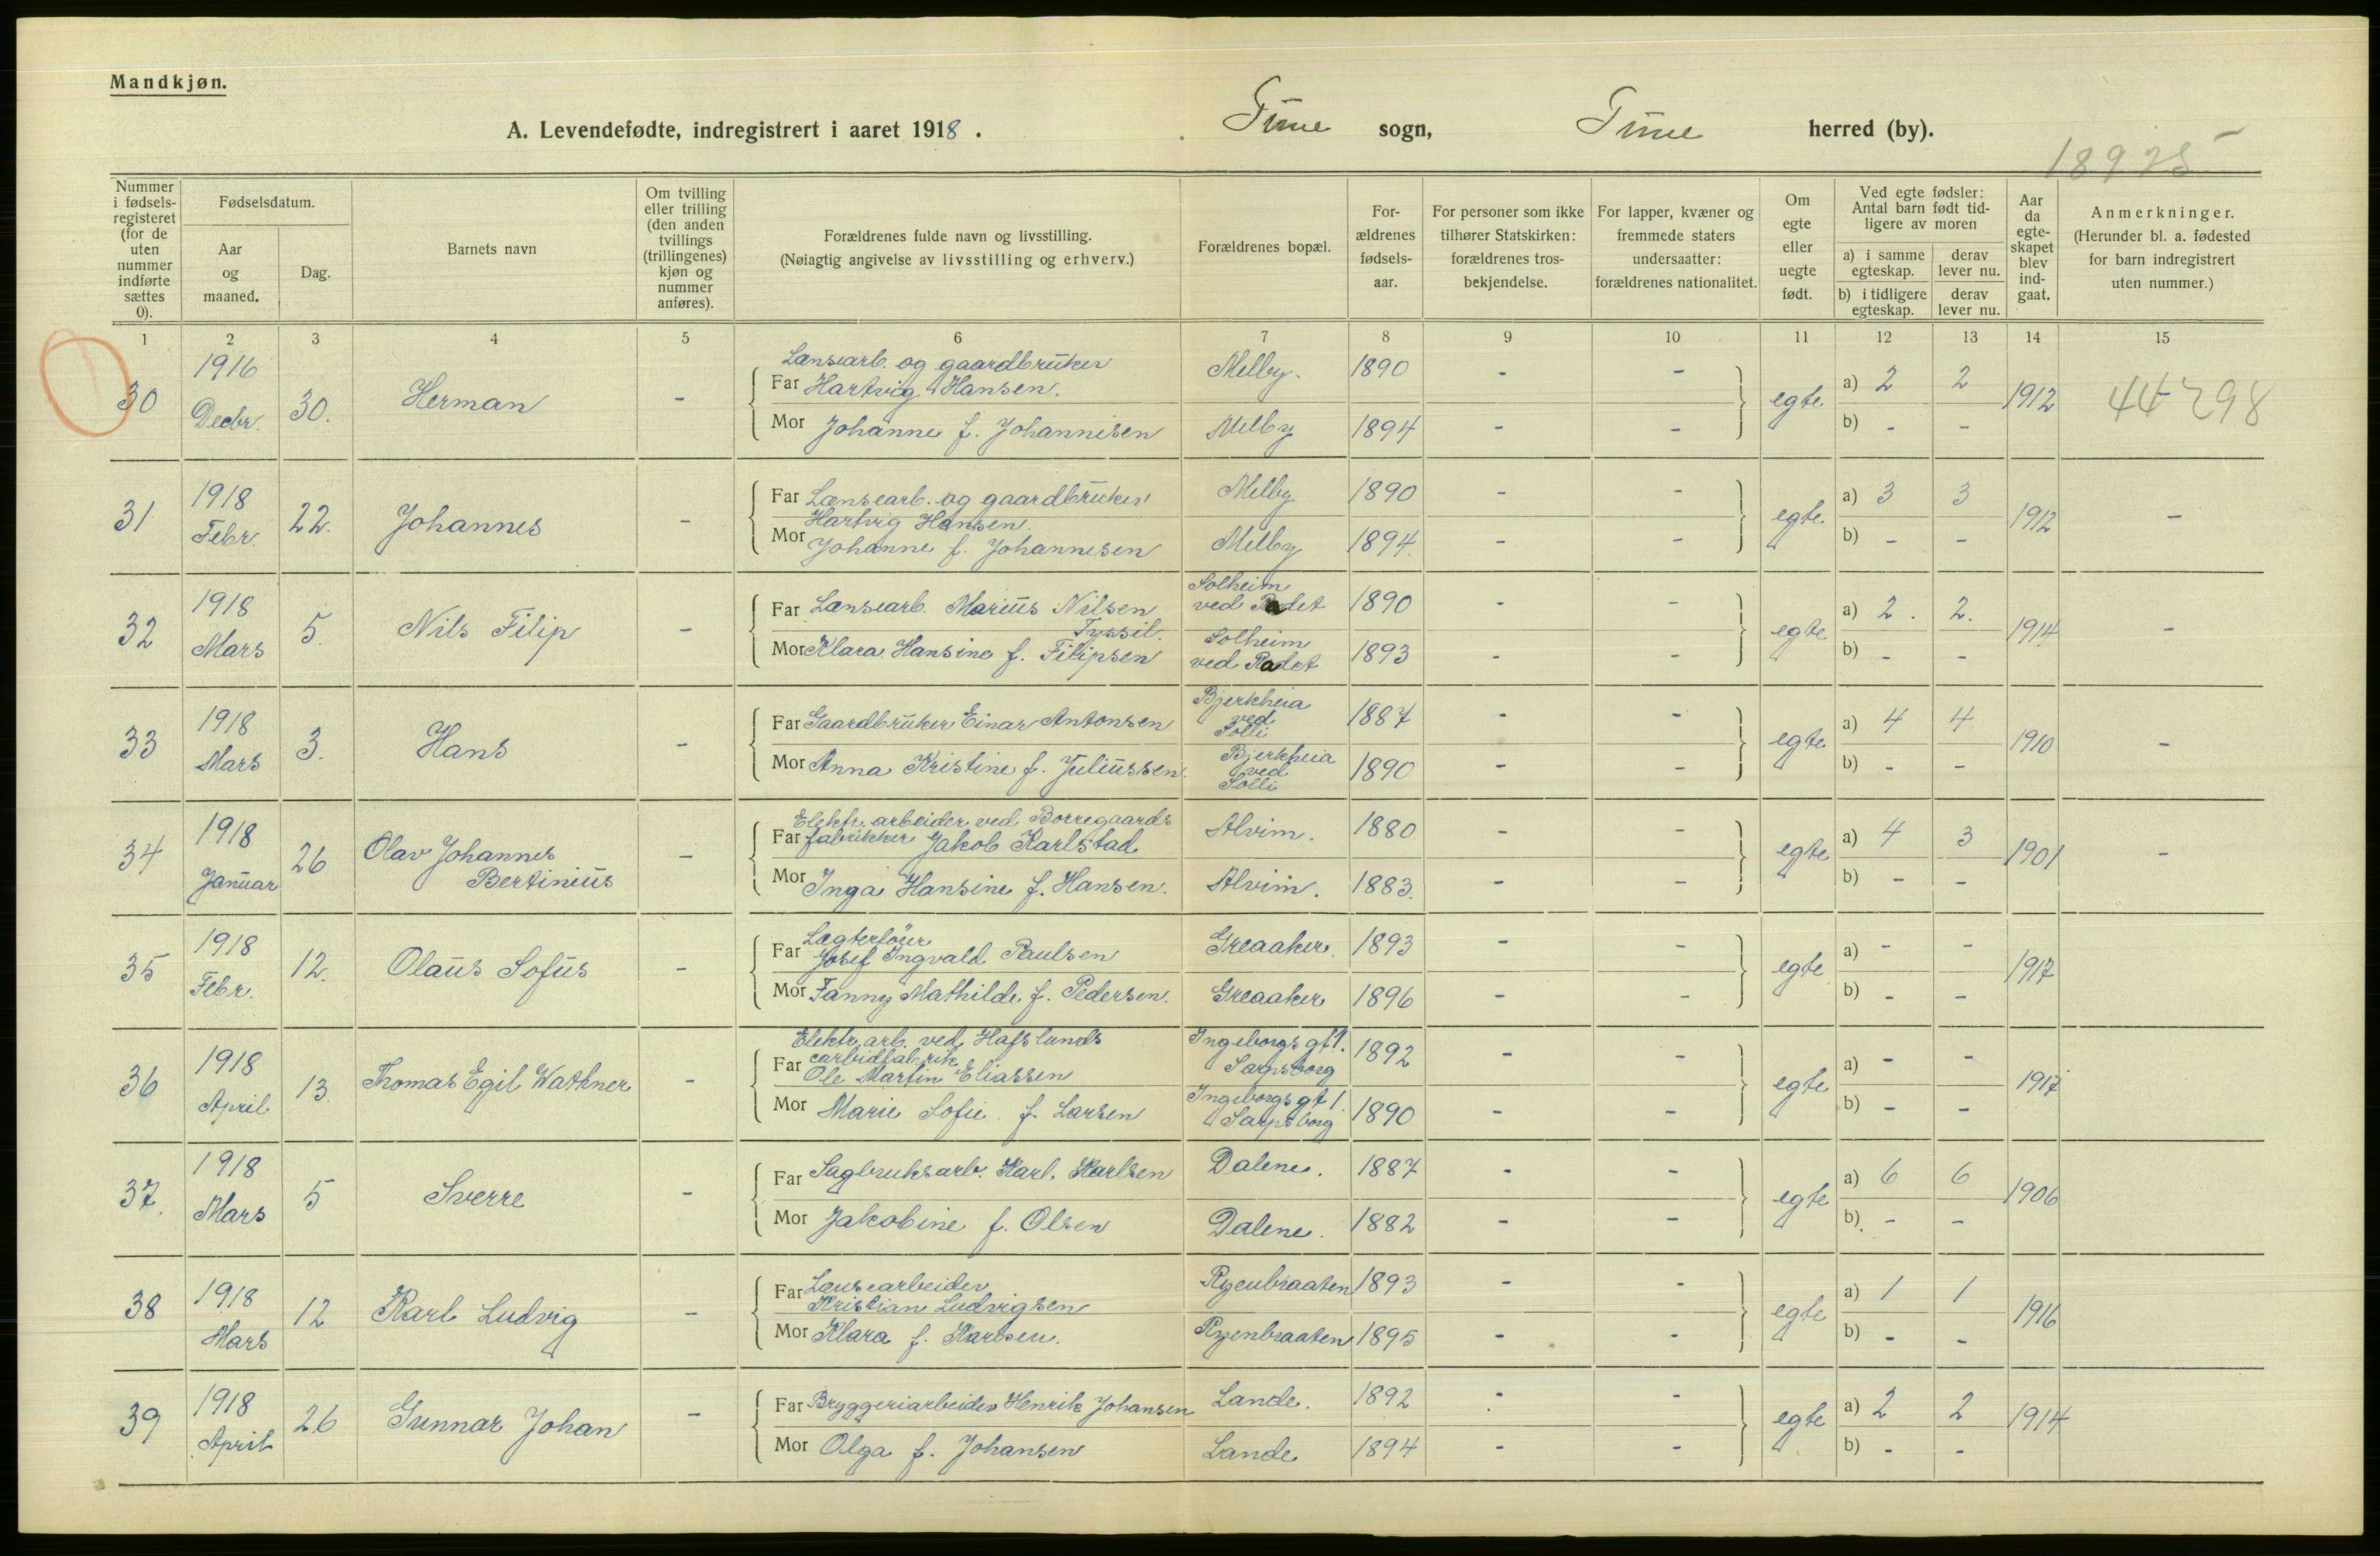 Mandkjøn.
A. Levendefødte, indregistrert i aaret 1918. Tune sogn, Tune herred (by).
18925
Nummer i fødselsregisteret (for de uten nummer indførte sættes 0). Fødselsdatum. Aar og maaned. Dag. Barnets navn Om tvilling eller trilling (den anden tvillings (trillingenes) kjøn og nummer anføres). Forældrenes fulde navn og livsstilling. (Nøiagtig angivelse av livsstilling og erhverv.) Forældrenes bopæl. Forældrenes fødselsaar. For personer som ikke tilhører Statskirken: forældrenes trosbekjendelse. For lapper, kvæner og fremmede staters undersaatter: forældrenes nationalitet. Om egte eller uegte født. Ved egte fødsler: Antal barn født tidligere av moren a) i samme egteskap. derav lever nu. b) i tidligere egteskap. derav lever nu. Aar da egteskapet blev indgaat. Anmerkninger. (Herunder bl. a. fødested for barn indregistrert uten nummer.)
1 2 3 4 5 6 7 8 9 10 11 12 13 14 15
30 1916 Decbr. 30. Herman - Lænsearb. og gaardbruker
Far Hartvig Hansen. Melby. 1890 - - egte a) 2 2 1912 44298
Mor Johanne f. Johannesen Melby 1894 - - b) - -
31 1918 Febr. 22. Johannes - Far Lænsearb. og gaardbruker Melby 1890 - - egte a) 3 3 1912 -
Hartvig Hansen.
Mor Johanne f. Johannesen Melby 1894. - - b) - -
32 1918 Mars 5. Nils Filip - Far Lænsearb. Marius Nilsen Tyssil. Solheim ved Radet 1890 - - egte a) 2. 2. 1914 -
Mor Klara Hansine f. Filipsen Solheim ved Radet 1893 - - b) - -
33 1918 Mars 3. Hans - Far Gaardbruker Einar Antonsen Bjerkheia ved Solli 1887 - - egte a) 4 4 1910 -
Mor Anna Kristine f. Juliussen. Bjerkheia ved Solli 1890 - - b) - -
34 1918 Januar 26 Olav Johannes Bertinius - Elektr. arbeider ved Borregaards
Far fabrikker Jakob Karlstad Alvim. 1880 - - egte a) 4 3 1901 -
Mor Inga Hansine f. Hansen. Alvim. 1883. - - b) - -
35 1918 Febr. 12. Olaus Sofus - Far Josef Ingvald Paulsen Greaaker. 1893 - - egte a) - - 1917
Mor Fanny Mathilde f. Pedersen. Greaaker 1896 - - b) - -
36 1918 April 13. Thomas Egil Wathner - Elektr. arb. ved Hafslunds
Far carbidfabrik
Ole Martin Eliassen Ingeborgs gt 1. Sarpsborg 1892 - - egte a) - - 1917
Mor Marie Sofie f. Larsen Ingeborgs gt 1. Sarpsborg 1890 - - b) - -
37. 1918 Mars 5 Sverre - Far Sagbruksarb. Karl. Karlsen Dalene. 1887 - - egte a) 6 6 1906
Mor Jakobine f. Olsen Dalene. 1882 - - b) - -
38 1918 Mars 12 Karl Ludvig - Far Lænsearbeider
Kristian Ludvigsen Ryenbraaten 1893 - - egte a) 1 1 1916
Mor Klara f. Karlsen. Ryenbraaten 1895 - - b) - -
39 1918 April 26 Gunnar Johan - Far Bryggeriarbeider Henrik Johansen Lande. 1892 - - egte a) 2 2 1914
Mor Olga f. Johansen Lande 1894 - - b) - -